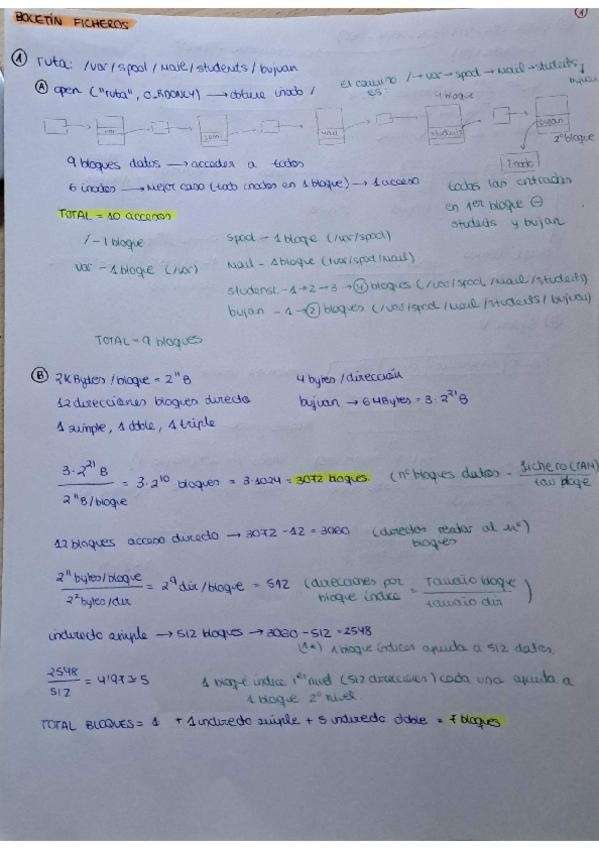 1
BOLETÍN FICHEROS
1 ruta: /var/spool/mail/students/bujuan
A open ("ruta", O_RDONLY) → obtiene inodo /
El camino es: / → var → spool → mail → students → bujuan
4 bloque
var
spool
mail
students
bujuan
2º bloque
Inodo
9 bloques datos → acceder a todos
6 inodos → mejor caso (todo inodos en 1 bloque) → 1 acceso
TOTAL = 10 accesos
todas las entradas
en 1er bloque ⊖
students y bujuan
/ - 1 bloque
var - 1 bloque (/var)
spool - 1 bloque (/var/spool)
mail - 1 bloque (/var/spool/mail)
studenst - 1 → 2 → 3 → 4 bloques (/var/spool/mail/students)
bujuan - 1 → 2 bloques (/var/spool/mail/students/bujuan)
TOTAL = 9 bloques
B 2KBytes/bloque = 2^11 B
4 bytes/dirección
12 direcciones bloques directo
bujuan → 6MBytes = 3·2^21 B
1 simple, 1 doble, 1 triple
3·2^21 B / 2^11 B/bloque = 3·2^10 bloques = 3·1024 = 3072 bloques
(nº bloques datos = fichero(TAM) / tam bloque)
12 bloques acceso directo → 3072 - 12 = 3060
(directos restar al nº bloques)
2^11 bytes/bloque / 2^2 bytes/dir = 2^9 dir/bloque = 512
(direcciones por bloque índice = tamaño bloque / tamaño dir)
indirecto simple → 512 bloques → 3060 - 512 = 2548
(1*) 1 bloque índices apunta a 512 datos
2548 / 512 = 4'97 ≃ 5
1 bloque índice 1er nivel (512 direcciones) cada una apunta a
1 bloque 2º nivel.
TOTAL BLOQUES = 1 + 1 indirecto simple + 5 indirecto doble = 7 bloques